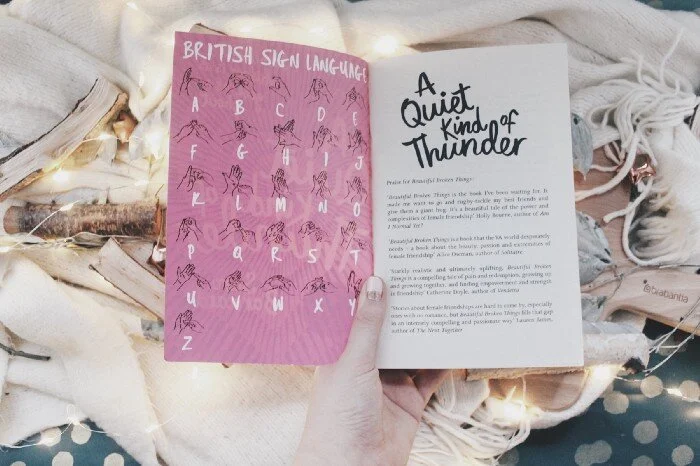 BRITISH SIGN LANGUAGE
A B C D E
F G H I J
K L M N O
P Q R S T
U V W X Y
Z
A
Quiet
Kind of
Thunder
Praise for Beautiful Broken Things:
'Beautiful Broken Things is the book I've been waiting for. It
made me want to go and rugby-tackle my best friends and
give them a giant hug. It's a beautiful tale of the power and
complexities of female friendship' Holly Bourne, author of Am
I Normal Yet?
'Beautiful Broken Things is a book that the YA world desperately
needs – a book about the beauty, passion and extremities of
female friendship' Alice Oseman, author of Solitaire
'Starkly realistic and ultimately uplifting, Beautiful Broken
Things is a compelling tale of pain and redemption, growing up
and growing together, and finding empowerment and strength
in friendship' Catherine Doyle, author of Vendetta
'Stories about female friendships are hard to come by, especially
ones with no romance, but Beautiful Broken Things fills that gap
in an intensely compelling and passionate way' Lauren James,
author of The Next Together
brabantia